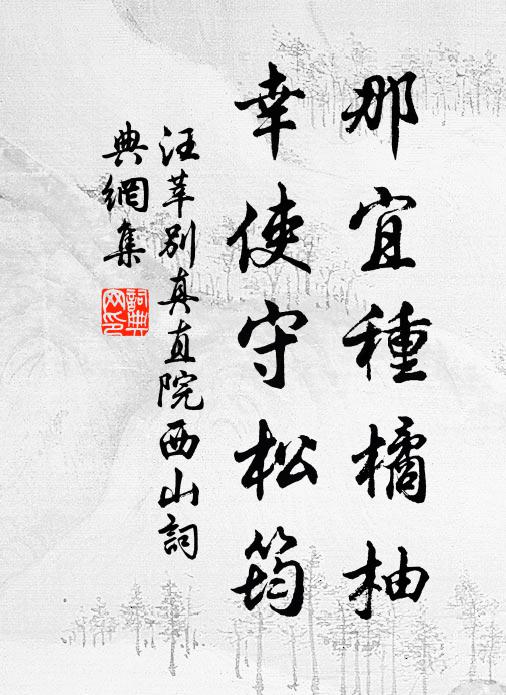 那宜種橘柚
幸使守松筠
汪莘別真直院西山詞
典網集
詞典网印